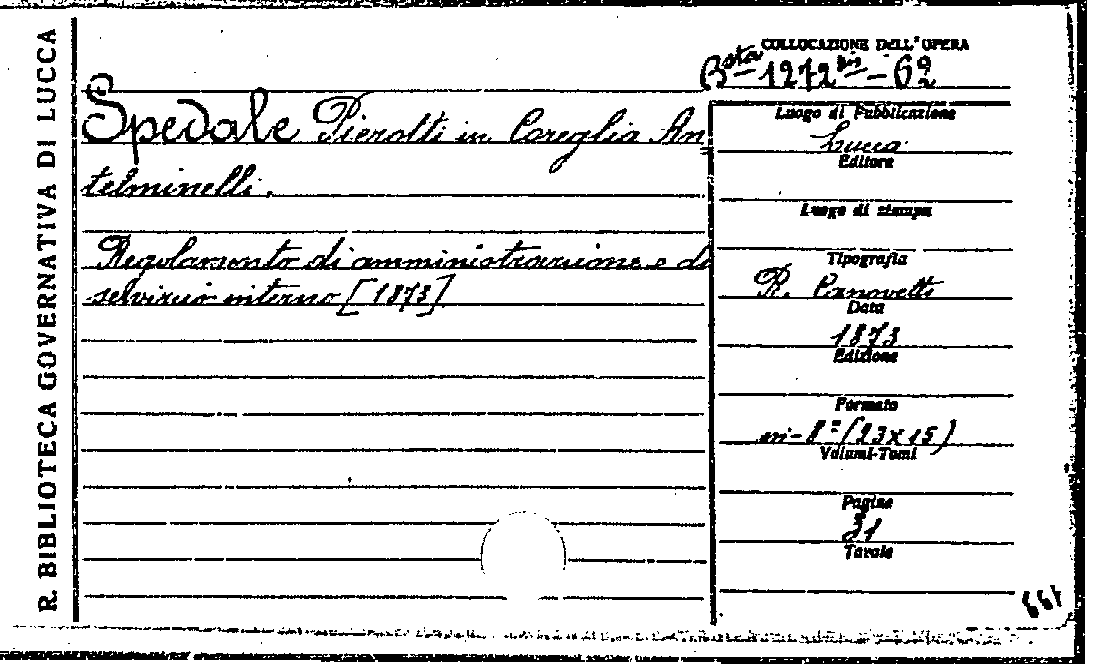 R. BIBLIOTECA GOVERNATIVA DI LUCCA
COLLOCAZIONE DELL'OPERA
Bsta 1272 bis - 62
Spedale Pierotti in Coreglia An=
telminelli.
Regolamento di amministrazione e di
servizio interno [1873]
Luogo di Pubblicazione
Lucca
Editore
Luogo di stampa
Tipografia
R. Canovetti
Data
1873
Edizione
Formato
in-8º (23x15)
Volumi-Tomi
Pagine
31
Tavole
199